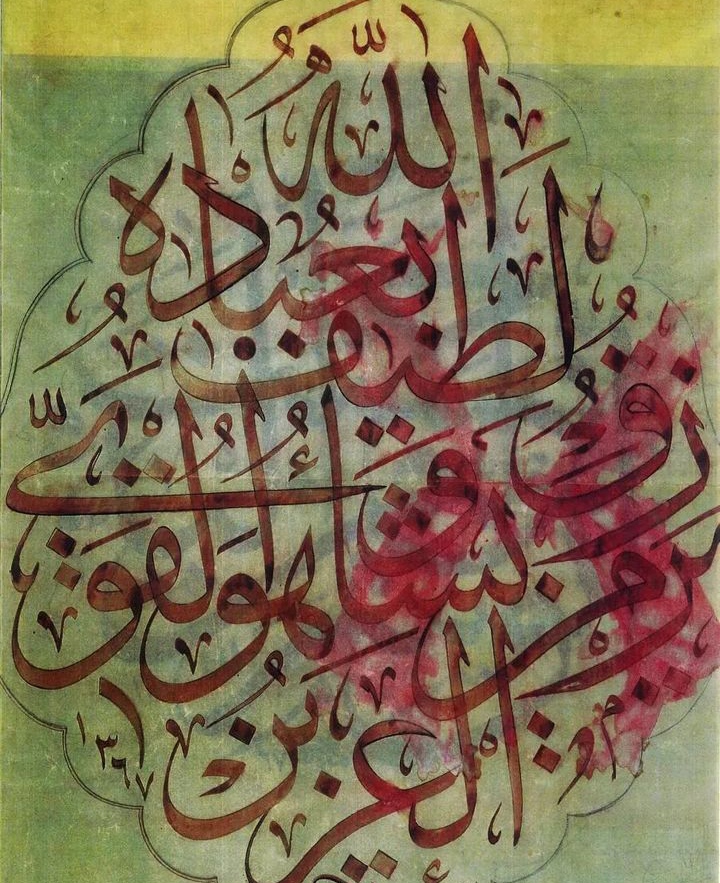 اللّٰه
لَطيفٌ بِعِبادِهِ
يَرزُقُ مَن يَشاءُ
وَهُوَ القَويُّ
العَزيزُ
١٣٦٧